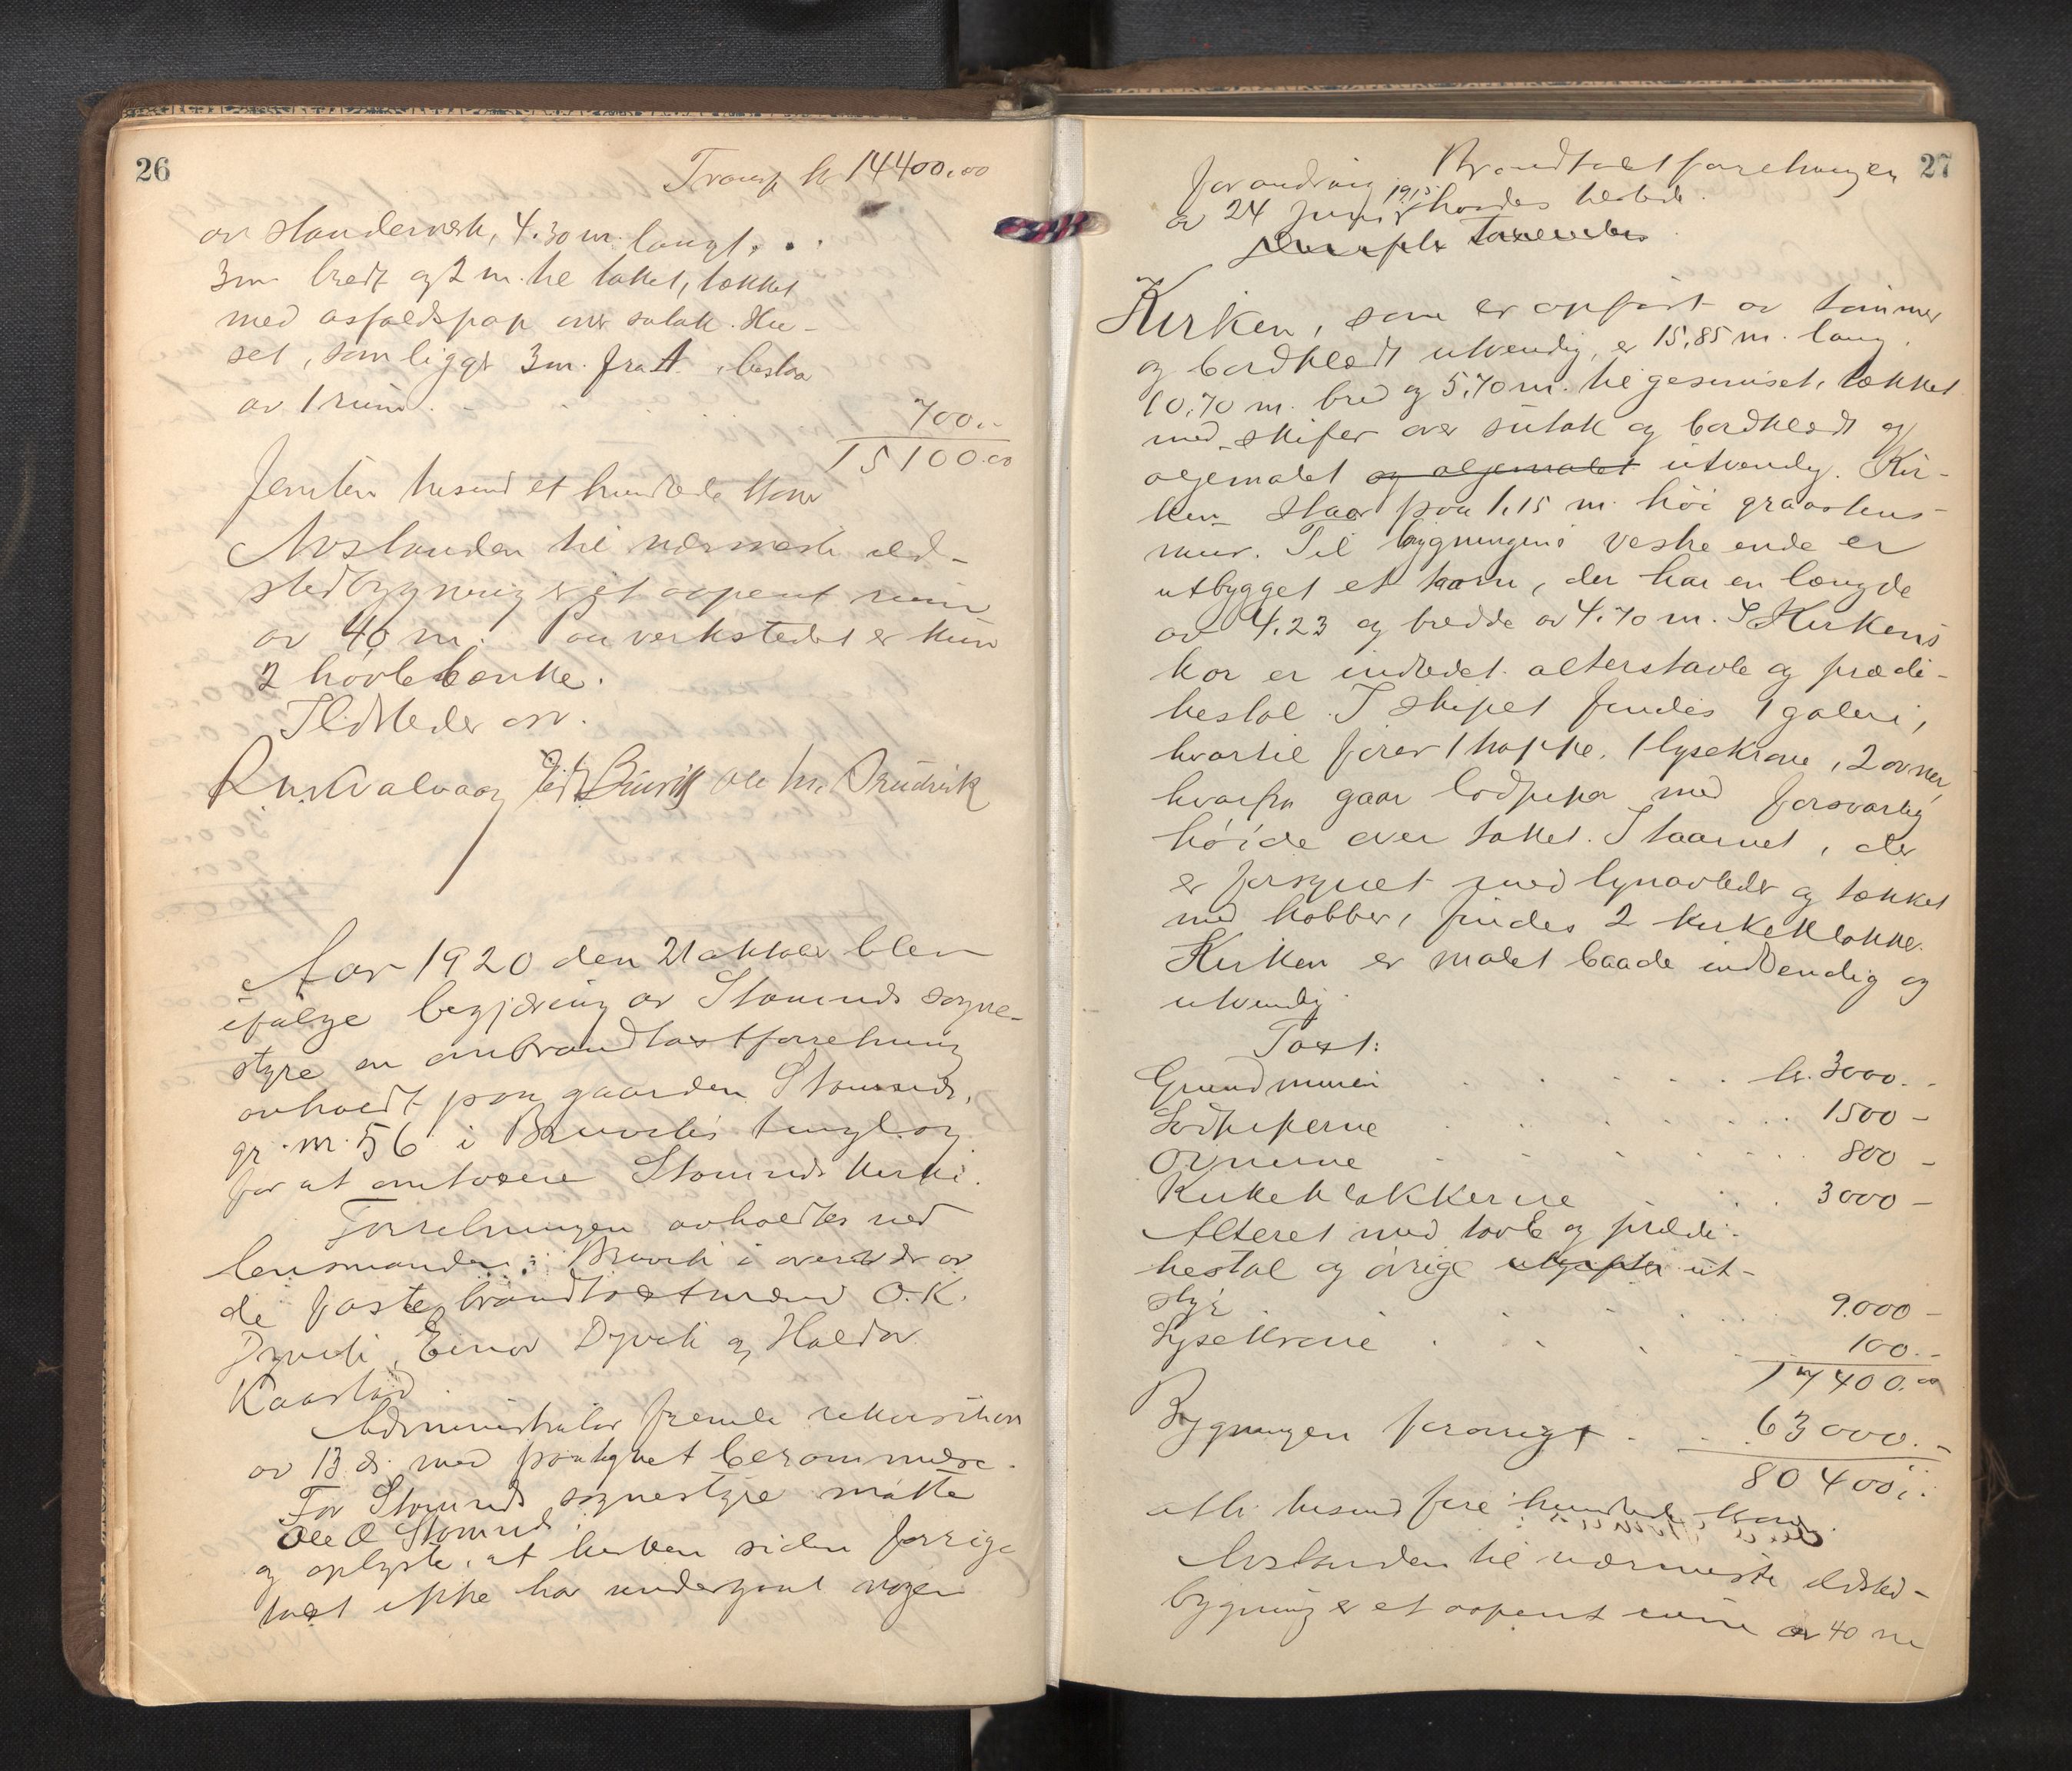 26
Transp kr 14400.00
av standerverk, 4.30 m. langt,
3 m bredt og 2 m. til taket, tækket
med asfaldspap over sutak. Hu-
set, som ligger 3 m. fra A. bestaa
av 1 rum. 700.-
15100.00
Femten tusend et hundrede kroner
Avstanden til nærmeste ild-
stedbygning er et aapent rum
av 40 m. Paa verkstedet er kun
2 høvlebænke.
Ildsteder osv.
Aar 1920 den 21 oktober blev
ifølge begjæring av Stamnes sogne-
styre en ombrandtaxtforretning
avholdt paa gaarden Stamnes,
gr. nr. 56 i Bruvik tinglag
for at omtaxere Stamnes kirke.
Forretningen avholdtes ved
lensmanden i Bruvik i overvær av
de faste brandtaxtmænd O. K.
Dyvik, Einar Dyvik og Haldor
Kaarstad.
Administrator fremla rekvisition
av 13 ds. med paategnet berammelse.
For Stamnes sognestyre møtte
Ole O Stamnes
og oplyste, at kirken siden forrige
taxt ikke har undergaat nogen
27
forandring. Brandtaxtforretningen
av 24 juni 1915 holdes herved.
Kirken, som er opført av tømmer
og bordklædt utvendig, er 15,85 m. lang.
10,70 m. bred og 5,70 m. til gesimset, tækket
med skifer over sutak og bordklædt og
oljemalet og oljemalet utvendig. Kir-
ken staar paa 1,15 m. høi graastens-
mur. Til bygningens vestre ende er
utbygget et taarn, der har en længde
av 4,23 og bredde av 4.70 m. I Kirkens
kor er indredet altertavle og prædi-
kestol. I skipet findes 1 galleri,
hvortil fører 1 trappe. 1 lysekrone, 2 ovner,
hvorfra gaar lodpiper med forsvarlig
høide over taket. I taarnet, der
er forsynet med lynavleder og tækket
med kobber, findes 2 kirkeklokker.
Kirken er malet baade indvendig og
utvendig.
Taxt:
Grundmuren kr. 3000.-
Lodpiperne 1500 -
Ovnene 800 -
Kirkeklokkerne 3000 -
Alteret med tavle og prædi-
kestol og øvrige ut-
styr 9.000 -
Lysekrone 100.-
17400.00
Bygningen forøvrigt 63000.-
80400.-
otti tusend fire hundrede kroner.
Avstanden til nærmeste ildsted-
bygning er et aapent rum av 40 m